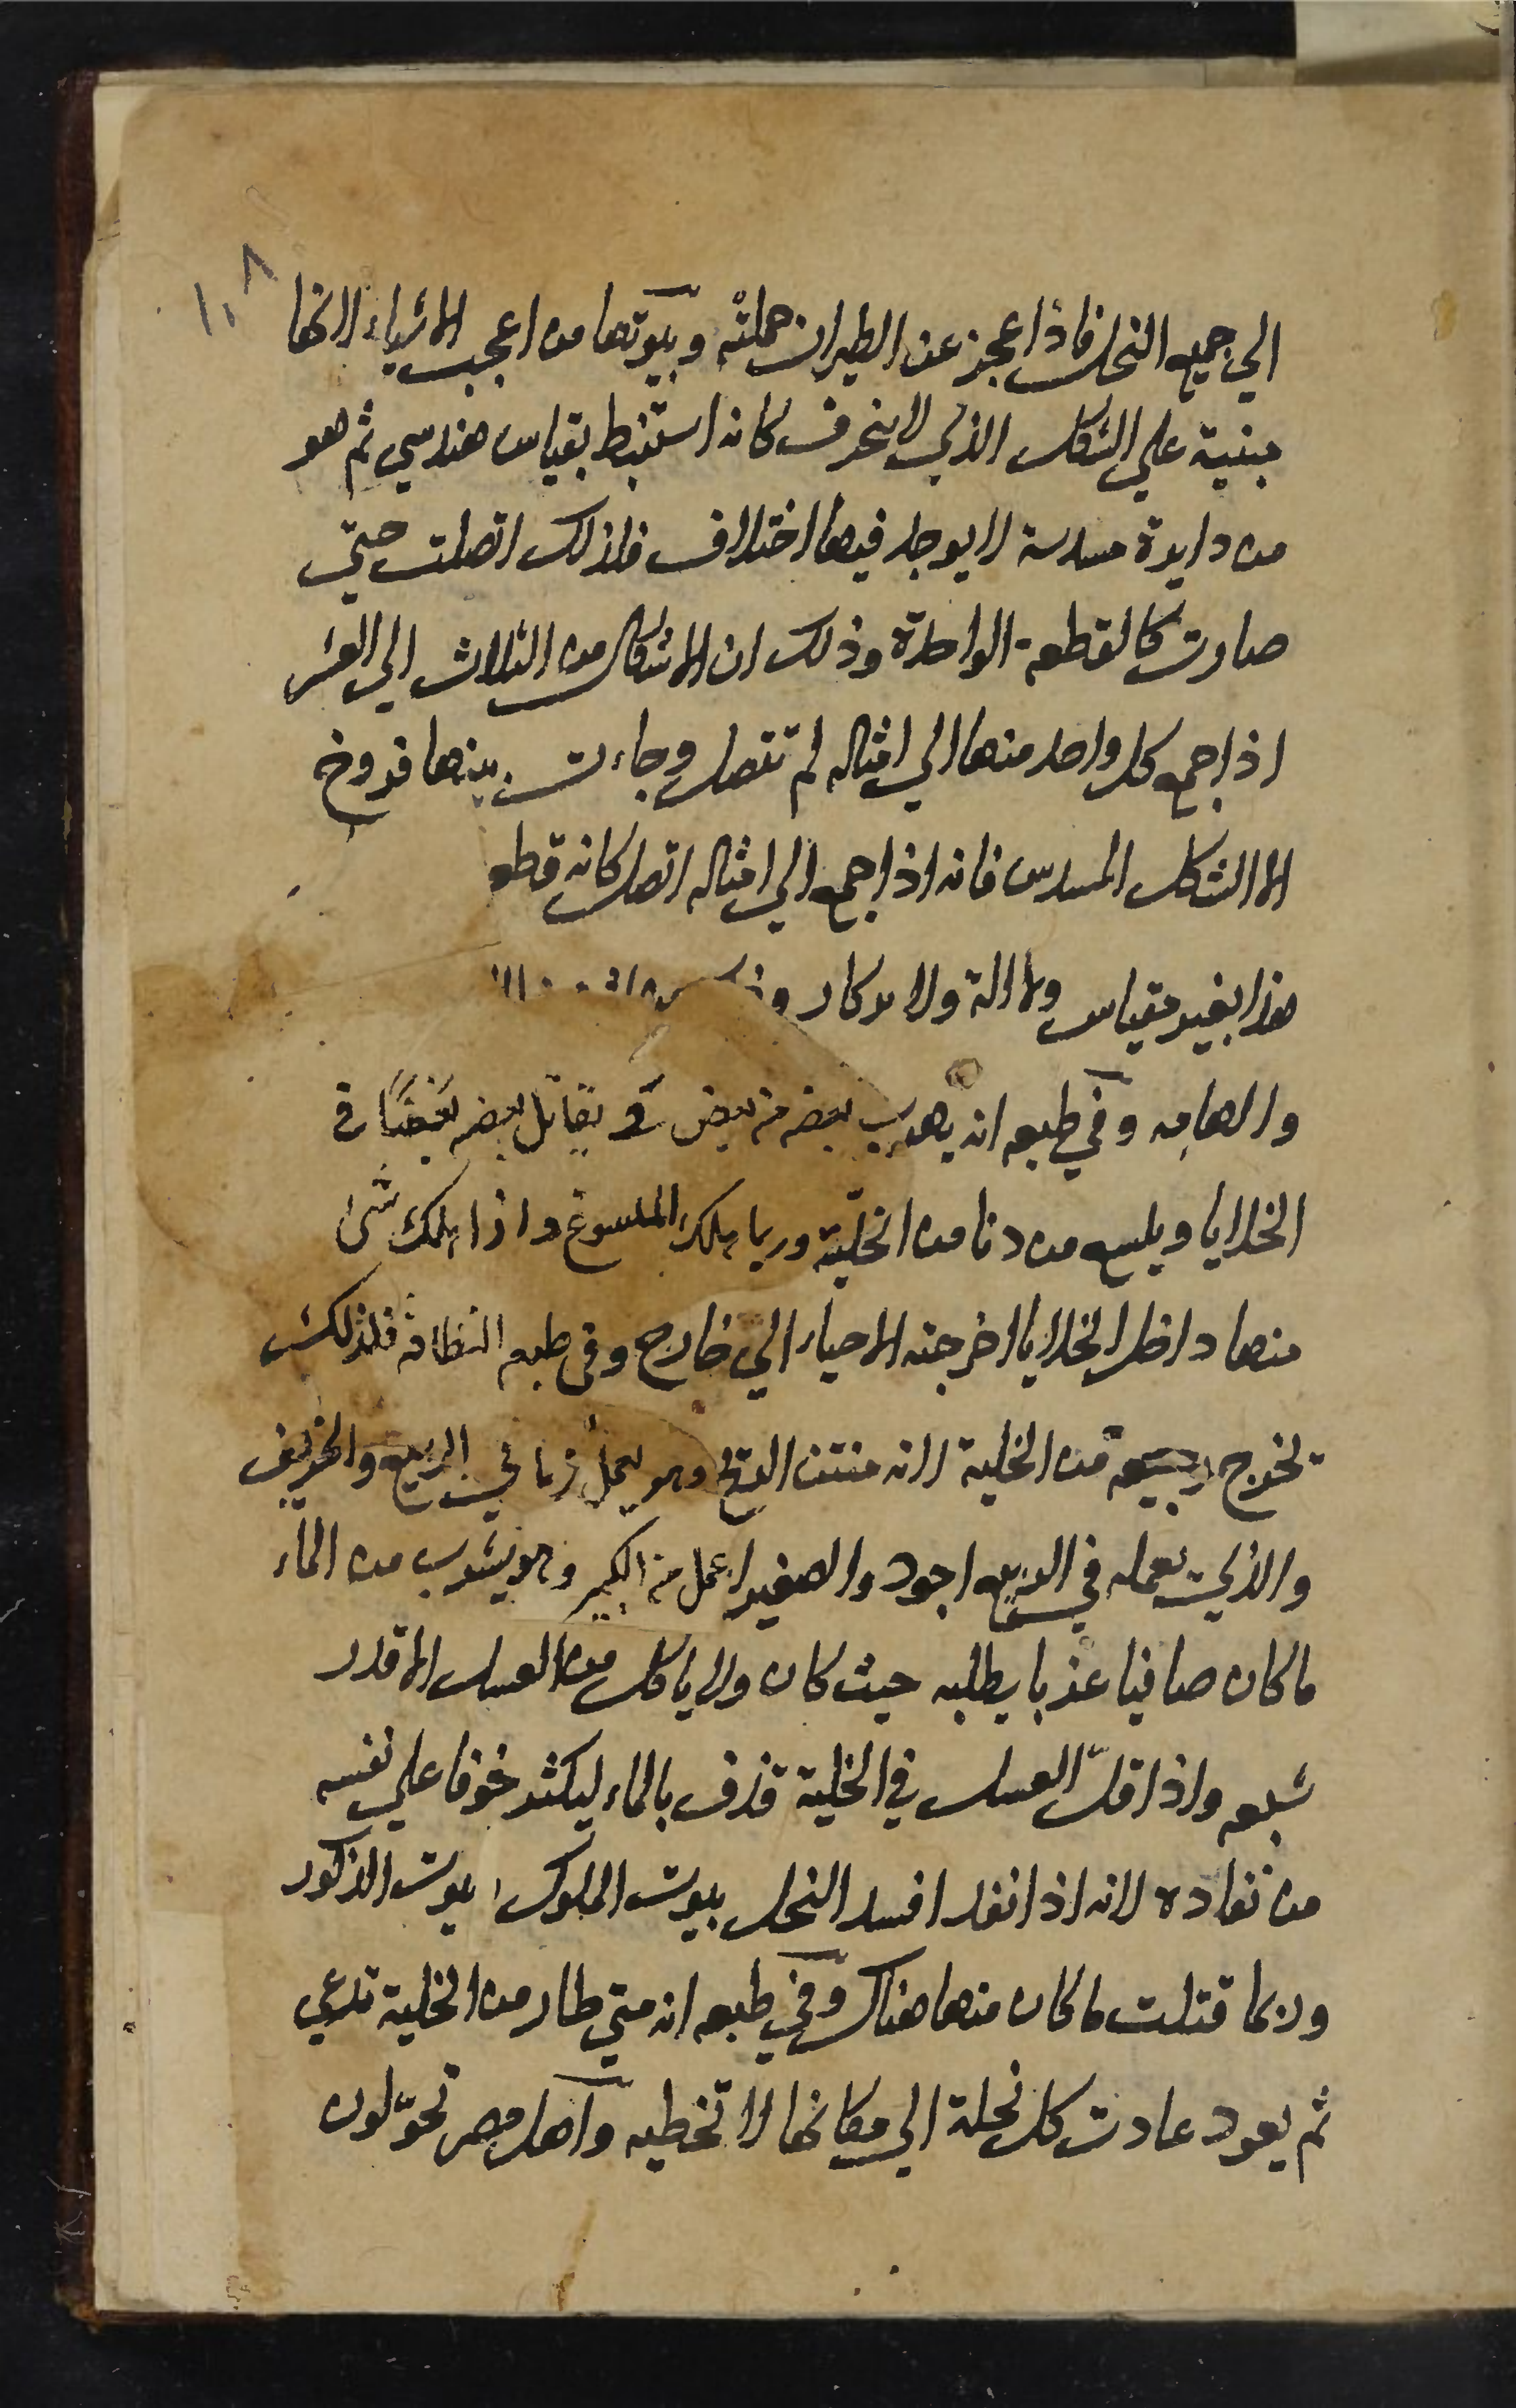 ١٠٨
الي جميع النحل فاذا عجز عن الطيران حملته وبيوتها من اعجب الاشياء لانها
مبنية علي الشكل الذي لا ينحرف كانه استنبط بقياس هندسي ثم هو
من دايرة مسدسة لا يوجد فيها اختلاف فلذلك اتصلت حتي
صارت كالقطعة الواحدة وذلك ان الاشكال من الثلاث الي العشر
اذا جمع كل واحد منها الي امثاله لم تتصل وجاءت بينها فروج
الا الشكل المسدس فانه اذا جمع الي امثاله اتصل كانه قطع
هذا بغير مقياس ولا الة ولا بركار
والهامه وفي طبعه انه يهرب بعضه من بعض و يقاتل بعضه بعضًا في
الخلايا ويلسع من دنا من الخلية وربما هلك الملسوع واذا هلك شئ
منها داخل الخلايا اخرجته الاحياء الي خارج وفي طبعه النظافة فلذلك
تخرج رجيعه من الخلية لانه منتن الريح وهو يعمل زماني الربيع والخريف
والذي يعمله في الربيع اجود والصغير اعمل من الكبير وهو يشرب من الماء
ما كان صافيا عذبا يطلبه حيث كان ولا ياكل من العسل الا قدر
شبعه واذا قلّ العسل في الخلية قذف بالماء ليكثر خوفا علي نفسه
من نفاده لانه اذا نفد افسد النحل بيوت الملوك بيوت الذكور
وربما قتلت ما كان منها هناك وفي طبعه انه متي طار من الخلية تدعي
ثم يعود عادت كل نحلة الي مكانها لا تخطيه واهل مصر تحوّلون